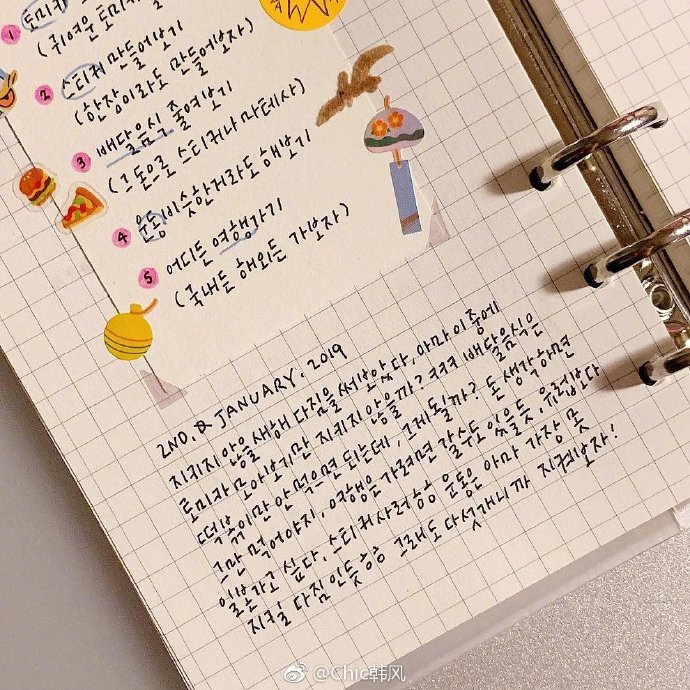 1 토미카
(귀여운 토미카
2 스티커 만들어보기
(한장이라도 만들어보자)
3 배달음식 줄여보기
(그돈으로 스티커나 마테사)
4 운동비슷한거라도 해보기
5 어디든 여행가기
(국내든 해외든 가보자)
2ND, JANUARY. 2019
지키지 않을 새해 다짐을 써보았다, 아마 이 중에
토미카 모아보기만 지키지 않을까? ㅋㅋㅋ 배달음식은
떡볶이만 안 먹으면 되는데, 그게될까? 돈 생각하면
그만 먹어야지, 여행은 가려면 갈수도 있을듯, 유럽보다
일본가고 싶다. 스티커사러 승승 운동은 아마 가장 못
지킬 다짐인듯 승승 그래도 다섯개니까 지켜보자!
@Chic韩风